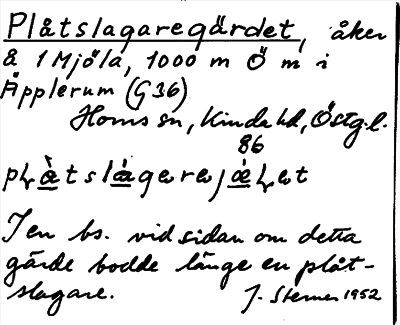 Plåtslagaregärdet, åker
å 1 Mjöla, 1000 m Ö m i
Äpplerum (G 36)
Horns sn, Kinda hd, Östg.l.
86
I en bs. vid sidan om detta
gärde bodde länge en plåt-
slagare.
J. Sterner 1952